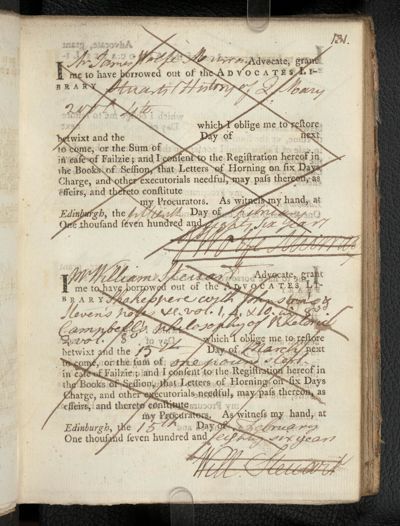 131.
I Mr James Wolfe Murray Advocate, grant
me to have borrowed out of the ADVOCATES LI-
BRARY Stuarts History of Q. Mary
2 vols 4to
which I oblige me to restore
betwixt and the Day of next
to come, or the Sum of
in case of Failzie; and I consent to the Registration hereof in
the Books of Session, that Letters of Horning on six Days
Charge, and other executorials needful, may pass thereon, as
effeirs, and thereto constitute
my Procurators. As witness my hand, at
Edinburgh, the Day of
One thousand seven hundred and eighty six years
I Mr William Steuart Advocate, grant
me to have borrowed out of the ADVOCATES LI-
BRARY Shakespere with Johnston &
Stevens notes vol. 1, & 10. 8vo
Campbells Philosophy of Rhetoric
2 vol. 8vo which I oblige me to restore
betwixt and the 15 Day of March next
to come, or the sum of one pound
in case of Failzie; and I consent to the Registration hereof in
the Books of Session, that Letters of Horning on six Days
Charge, and other executorials needful, may pass thereon, as
effeirs, and thereto constitute
my Procurators. As witness my hand, at
Edinburgh, the 15th Day of February
One thousand seven hundred and eighty six years
Will Steuart